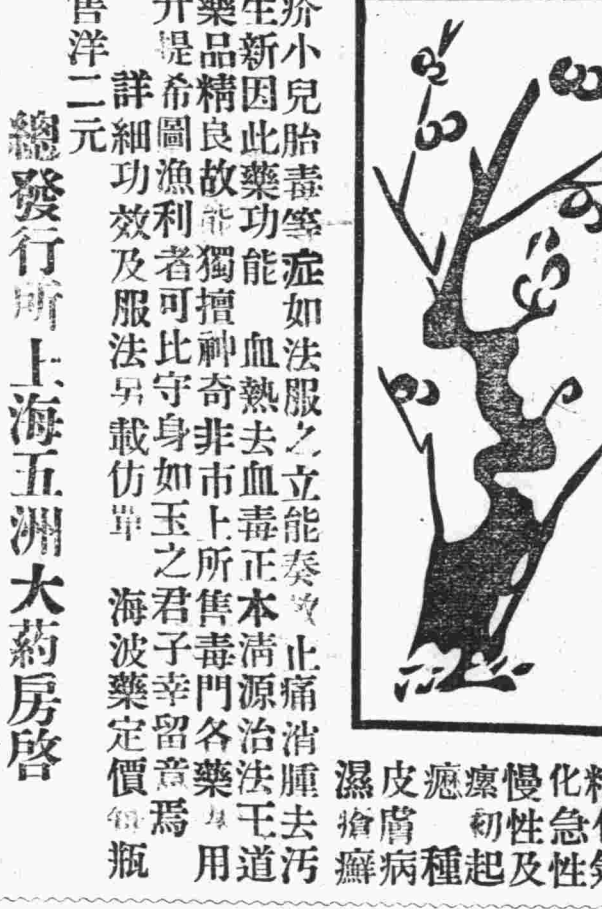 化急性
慢性及
瘰初起
瘛種
皮膚病
濕瘡癬
疥小兒胎毒等症如法服之立能奏效止痛消腫去汚
生新因此藥功能血熱去血毒正本清源治法王道
藥品精良故能獨擅神奇非市上所售毒門各藥用
升提希圖漁利者可比守身如玉之君子幸留意焉
詳細功效及服法另載仿單 海波藥定價每瓶
售洋二元
總發行所上海五洲大葯房啓